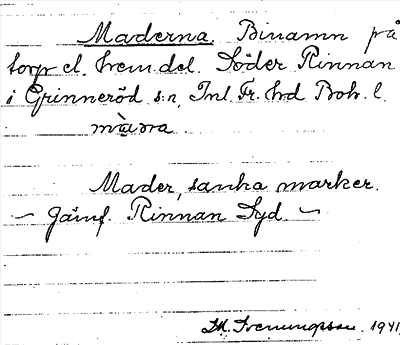 Maderna. Binamn på
torp el. hem.del. Söder Rinnan
i Grinneröd s:n, Inl. Fr. hrd Boh. l.
Mader, sanka marker.
~ Jämf. Rinnan Syd. ~
1941